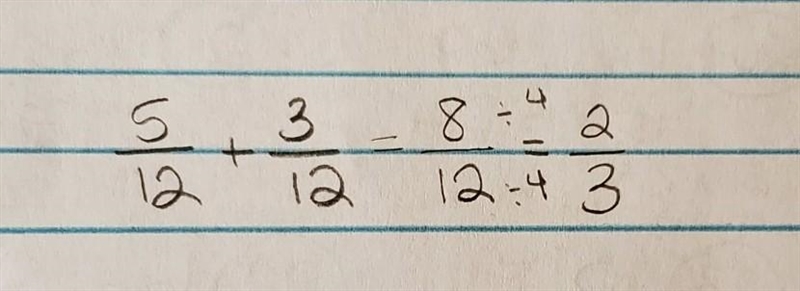 5/12 + 3/12 = 8÷4/12÷4 = 2/3